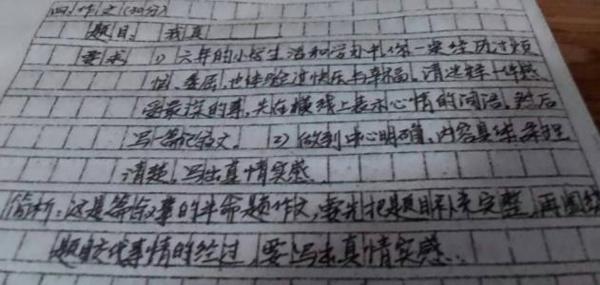 四、作文(30分)
题目：我真
要求 1) 六年的小学生活和学习中，你一定经历过烦
恼、委屈，也体验过快乐与幸福。请选择一件感
受最深的事，先在横线上表示心情的词语，然后
写一篇记叙文。 2) 做到中心明确，内容具体，条理
清楚，写出真情实感。
简析：这是篇叙事的半命题作文，要先把题目补充完整，再围绕
题目交代事情的经过，要写出真情实感。